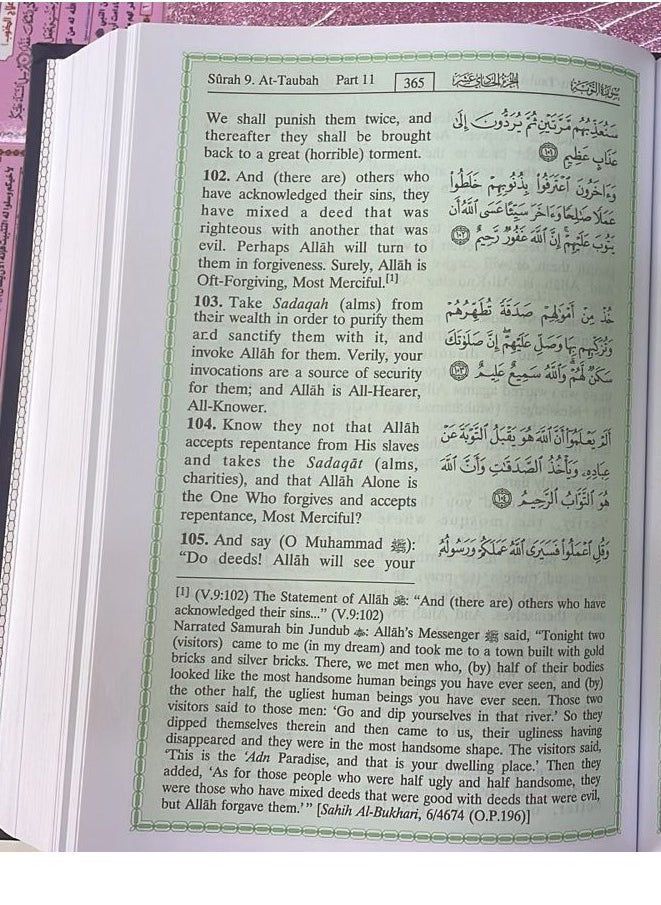 Sûrah 9. At-Taubah Part 11 365 الجزء الحادي عشر سورة التوبة
We shall punish them twice, and
thereafter they shall be brought
back to a great (horrible) torment.
102. And (there are) others who
have acknowledged their sins, they
have mixed a deed that was
righteous with another that was
evil. Perhaps Allâh will turn to
them in forgiveness. Surely, Allâh is
Oft-Forgiving, Most Merciful.[1]
103. Take Sadaqah (alms) from
their wealth in order to purify them
and sanctify them with it, and
invoke Allâh for them. Verily, your
invocations are a source of security
for them; and Allâh is All-Hearer,
All-Knower.
104. Know they not that Allâh
accepts repentance from His slaves
and takes the Sadaqât (alms,
charities), and that Allâh Alone is
the One Who forgives and accepts
repentance, Most Merciful?
105. And say (O Muhammad ﷺ):
“Do deeds! Allâh will see your
سَنُعَذِّبُهُم مَّرَّتَيْنِ ثُمَّ يُرَدُّونَ إِلَىٰ
عَذَابٍ عَظِيمٍ ١٠١
وَءَاخَرُونَ ٱعْتَرَفُوا۟ بِذُنُوبِهِمْ خَلَطُوا۟
عَمَلًا صَٰلِحًا وَءَاخَرَ سَيِّئًا عَسَى ٱللَّهُ أَن
يَتُوبَ عَلَيْهِمْ ۚ إِنَّ ٱللَّهَ غَفُورٌ رَّحِيمٌ ١٠٢
خُذْ مِنْ أَمْوَٰلِهِمْ صَدَقَةً تُطَهِّرُهُمْ
وَتُزَكِّيهِم بِهَا وَصَلِّ عَلَيْهِمْ ۖ إِنَّ صَلَوٰتَكَ
سَكَنٌ لَّهُمْ ۗ وَٱللَّهُ سَمِيعٌ عَلِيمٌ ١٠٣
أَلَمْ يَعْلَمُوٓا۟ أَنَّ ٱللَّهَ هُوَ يَقْبَلُ ٱلتَّوْبَةَ عَنْ
عِبَادِهِۦ وَيَأْخُذُ ٱلصَّدَقَٰتِ وَأَنَّ ٱللَّهَ
هُوَ ٱلتَّوَّابُ ٱلرَّحِيمُ ١٠٤
وَقُلِ ٱعْمَلُوا۟ فَسَيَرَى ٱللَّهُ عَمَلَكُمْ وَرَسُولُهُۥ
[1] (V.9:102) The Statement of Allâh ﷻ: “And (there are) others who have
acknowledged their sins...” (V.9:102)
Narrated Samurah bin Jundub: Allâh’s Messenger ﷺ said, “Tonight two
(visitors) came to me (in my dream) and took me to a town built with gold
bricks and silver bricks. There, we met men who, (by) half of their bodies
looked like the most handsome human beings you have ever seen, and (by)
the other half, the ugliest human beings you have ever seen. Those two
visitors said to those men: ‘Go and dip yourselves in that river.’ So they
dipped themselves therein and then came to us, their ugliness having
disappeared and they were in the most handsome shape. The visitors said,
‘This is the ‘Adn Paradise, and that is your dwelling place.’ Then they
added, ‘As for those people who were half ugly and half handsome, they
were those who have mixed deeds that were good with deeds that were evil,
but Allâh forgave them.’” [Sahih Al-Bukhari, 6/4674 (O.P.196)]